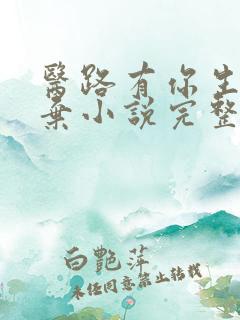 醫路有你生
棄小說完整
白艷萍
未經同意禁止轉載